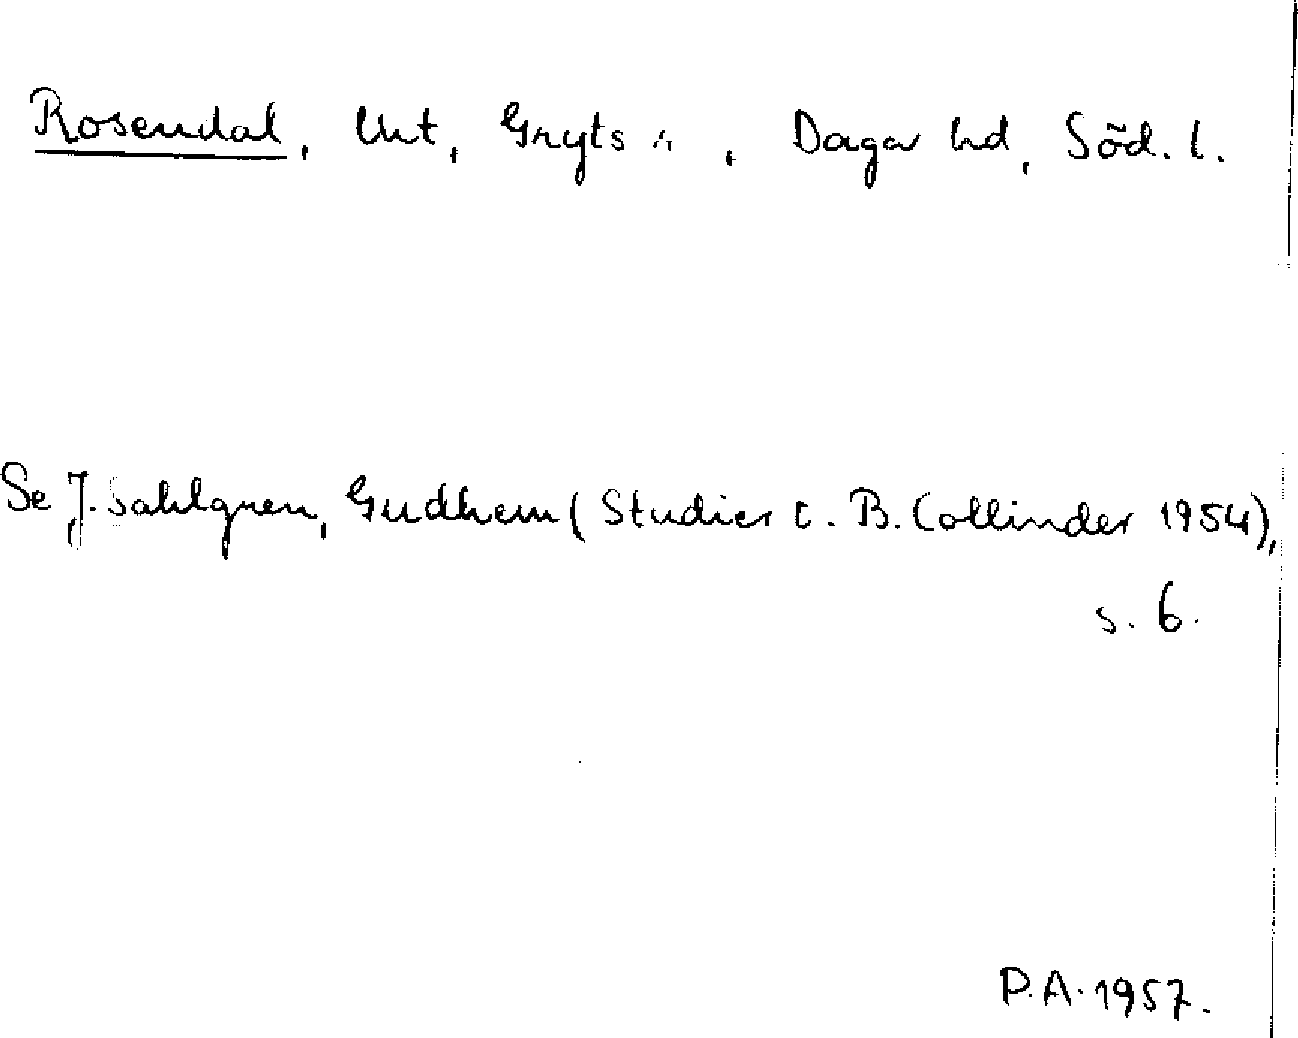 Rosendal, Gryts sn, Daga hd, Söd. l.
Se J. Sahlgren, Gudhem (Studier t. B. Collinder 1954),
s. 6.
P.A. 1957.